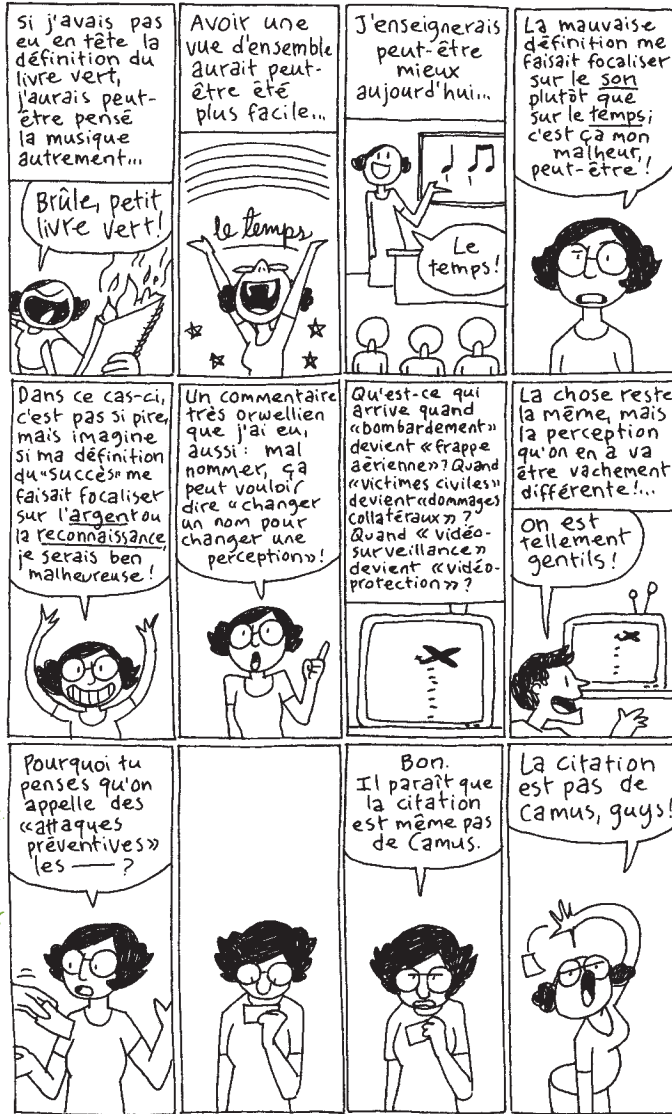 Si j'avais pas
eu en tête la
définition du
livre vert,
j'aurais peut-
être pensé
la musique
autrement...
Brûle, petit
livre vert!
Avoir une
vue d'ensemble
aurait peut-
être été
plus facile...
le temps
J'enseignerais
peut-être
mieux
aujourd'hui...
Le
temps!
La mauvaise
définition me
faisait focaliser
sur le son
plutôt que
sur le temps;
c'est ça mon
malheur,
peut-être!
Dans ce cas-ci,
c'est pas si pire,
mais imagine
si ma définition
du "succès" me
faisait focaliser
sur l'argent ou
la reconnaissance,
je serais ben
malheureuse!
Un commentaire
très orwellien
que j'ai eu,
aussi: mal
nommer, ça
peut vouloir
dire «changer
un nom pour
changer une
perception»!
Qu'est-ce qui
arrive quand
«bombardement»
devient «frappe
aérienne»? Quand
«victimes civiles»
devient «dommages
collatéraux»?
Quand «vidéo-
surveillance»
devient «vidéo-
protection»?
La chose reste
la même, mais
la perception
qu'on en a va
être vachement
différente!...
On est
tellement
gentils!
Pourquoi tu
penses qu'on
appelle des
«attaques
préventives»
les — ?
Bon.
Il paraît que
la citation
est même pas
de Camus.
La citation
est pas de
Camus, guys!